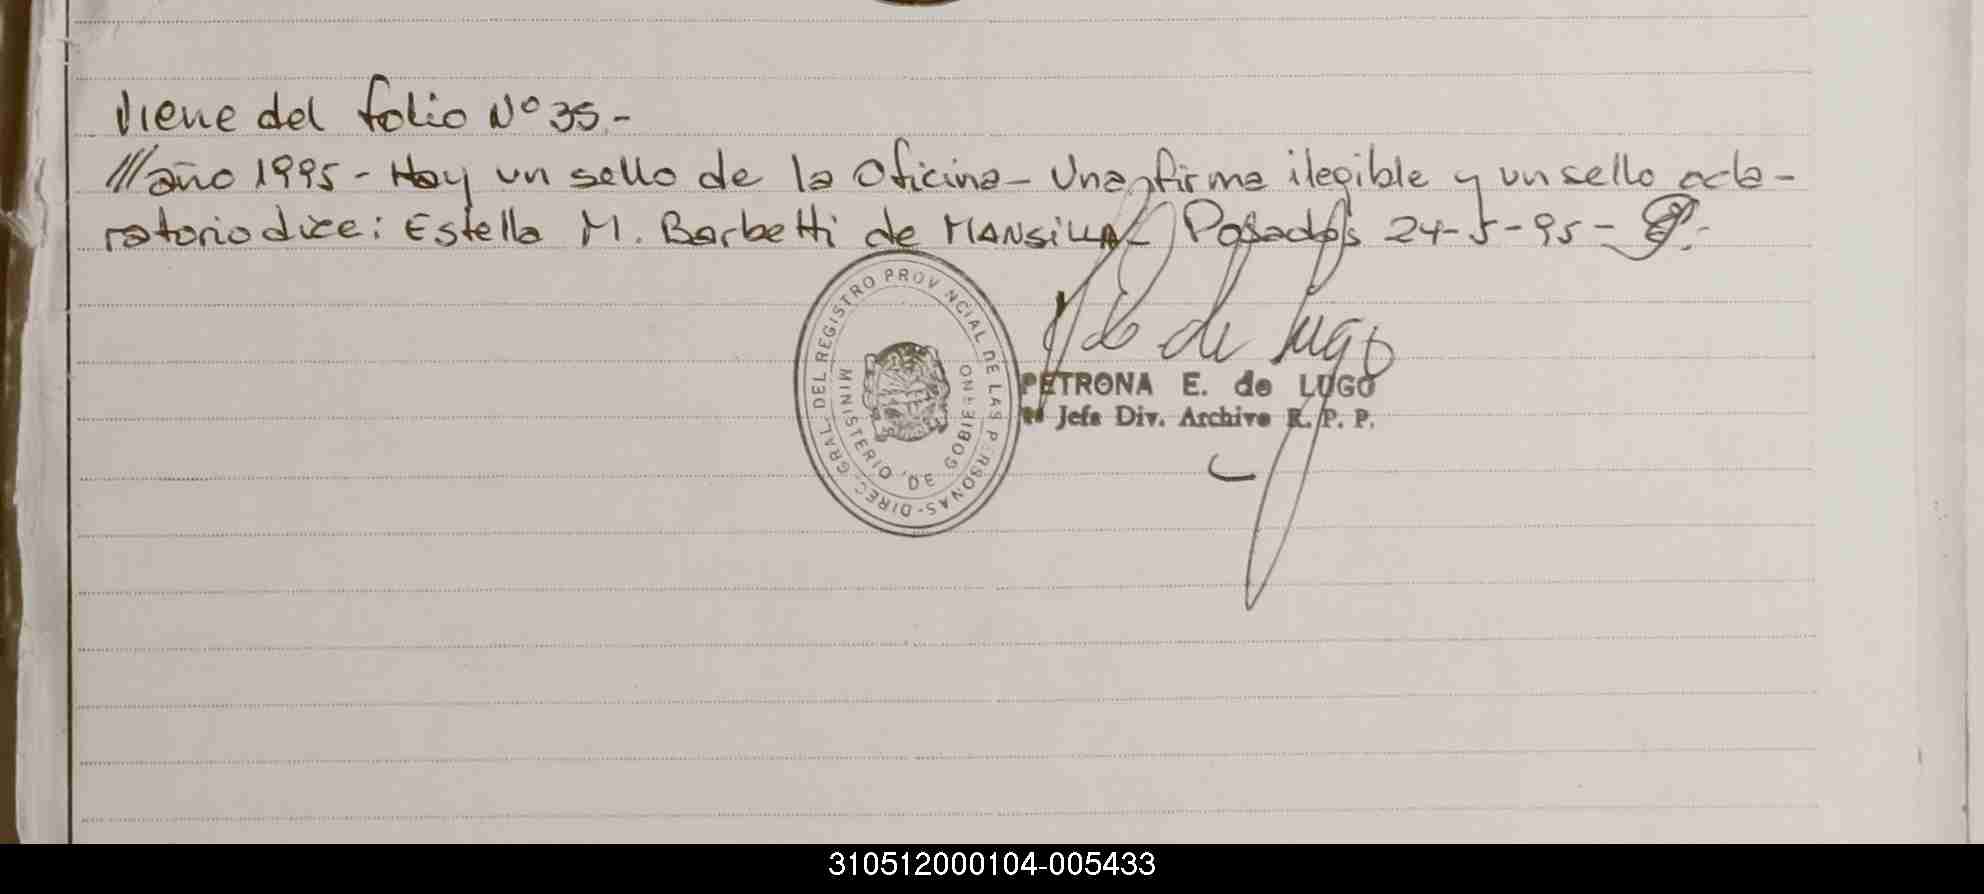 Viene del folio Nº 35.-
///año 1995 - Hay un sello de la Oficina - Una firma ilegible y un sello acla-
ratorio dice: Estella M. Barbetti de MANSILLA - Posadas 24-5-95 -
DIREC. GRAL. DEL REGISTRO PROVINCIAL DE LAS PERSONAS-
MINISTERIO DE GOBIERNO
de Lugo
PETRONA E. de LUGO
Jefa Div. Archivo R. P. P.
310512000104-005433